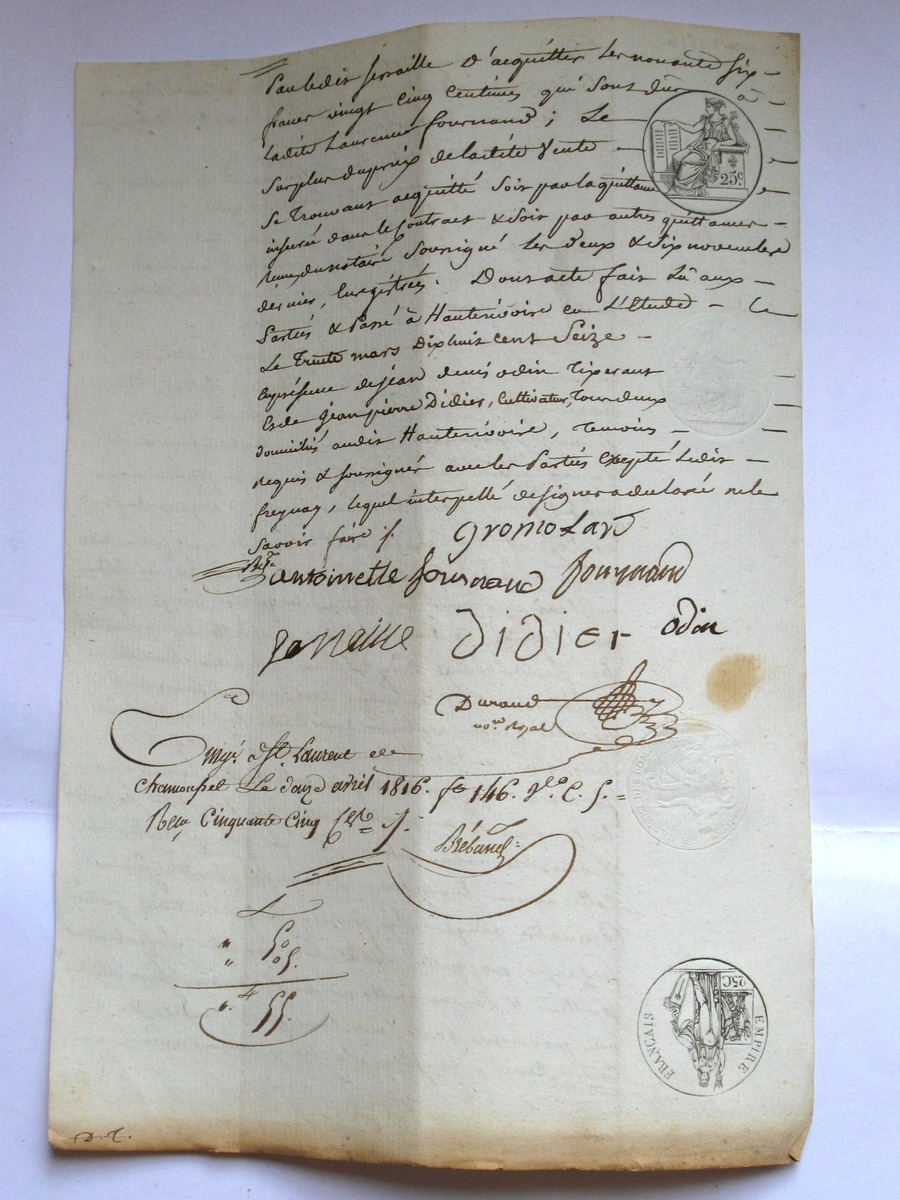 Par ledit ferraille d'acquitter les nonante six
francs vingt cinq centimes qui sont dus à
Ladite Laurence fournand ; Le
Surplus du prix de ladite Vente
Se Trouvant acquitté Soit par la quittance
insérée dans le Contract & Soit par autres quittances
du notaire Soussigné Les Deux & Six novembre
dernier, Enregistrées. Dont acte fait Lû aux
Parties & Passé à Hauterivoire en L'Etude
Le Trente mars Dix huit cent Seize
En présence de jean denis odin Tixerant
Et de jean pierre Didier, Cultivateur, Tous deux
domiciliés audit Hauterivoire, Temoins
Requis & Soussignés avec les Parties Excepté Ledit
freynay, lequel interpellé de signer a declaré ne le
Savoir faire
gromolard
antoinette fournand fournand
ferraille Didier odin
Durand
no.re Royal
Enrg.é à St. Laurent de
chamousset Le douze avril 1816. fo 146. Vo. C. 5.
Reçu Cinquante Cinq
50
05.
55.
25c.
EMPIRE FRANÇAIS
25C
D. T.